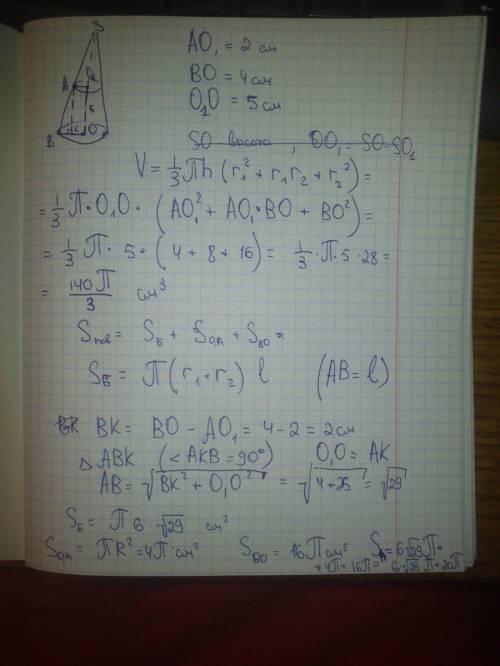 S
A
O₁
5
B
K
O
AO₁ = 2 см
BO = 4 см
O₁O = 5 см
SO высота , OO₁ = SO - SO₁
V = 1/3 Пh (r₁² + r₁r₂ + r₂²) =
= 1/3 П · O₁O · (AO₁² + AO₁·BO + BO²) =
= 1/3 П · 5 · (4 + 8 + 16) = 1/3 · П · 5 · 28 =
= 140П/3 см³
Sпов = Sб + SO₁A + SBO =
Sб = П (r₁ + r₂) l (AB = l)
BK = BO - AO₁ = 4 - 2 = 2 см
△ ABK (<AKB = 90°) O₁O = AK
AB = √(BK² + O₁O²) = √(4+25) = √29
Sб = П 6 · √29 см²
SO₁A = ПR² = 4П см² SBO = 16П см² S = 6√29 П +
+ 4П + 16П = 6√29 П + 20П